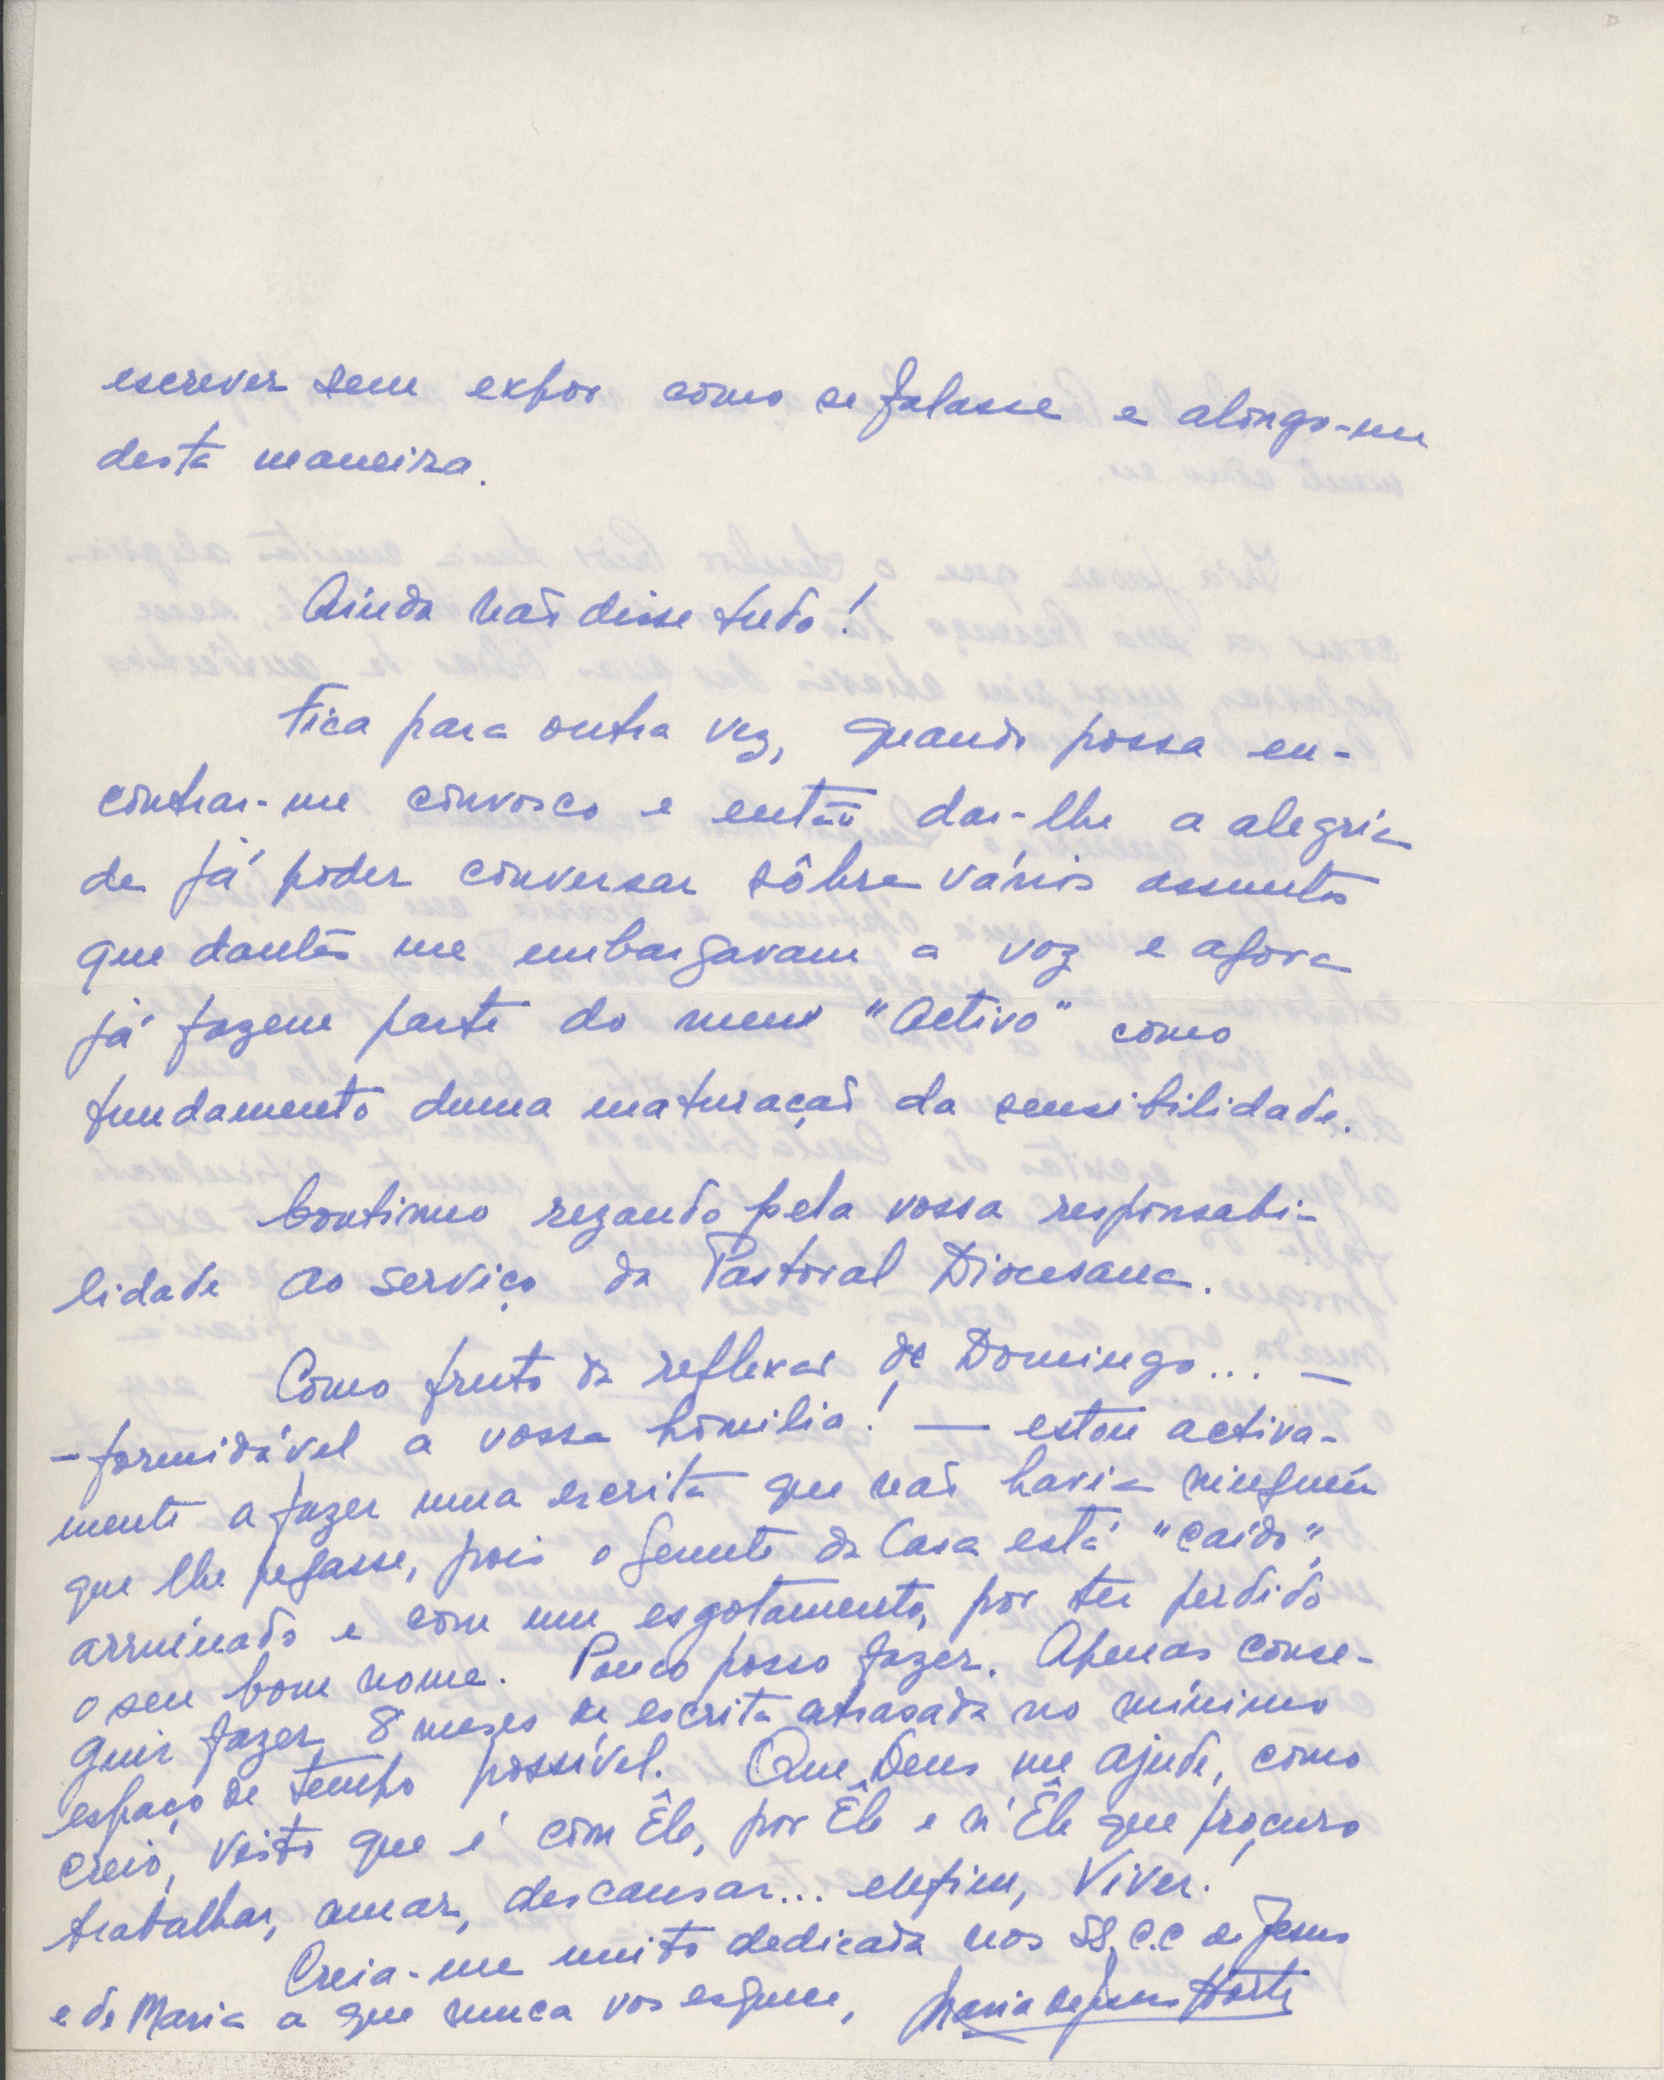 escrever sem expor como se falasse e alongo-me
desta maneira.
Ainda não disse tudo!
Fica para outra vez, quando possa en-
contrar-me convosco e então dar-lhe a alegria
de já poder conversar sôbre vários assuntos
que dantes me embargavam a voz e agora
já fazem parte do meu "Activo" como
fundamento duma maturação da sensibilidade.
Continuo rezando pela vossa responsabi-
lidade ao serviço da Pastoral Diocesana.
Como fruto da reflexão de Domingo... —
- formidável a vossa homilia! — estou activa-
mente a fazer uma escrita que não havia ninguém
que lhe pegasse, pois o gerente da Casa está "caído",
arruinado e com um esgotamento, por ter perdido
o seu bom nome. Pouco posso fazer. Apenas conse-
guir fazer 8 meses de escrita atrasada no mínimo
espaço de tempo possível. Que Deus me ajude, como
creio, visto que é com Êle, por Êle e n'Êle que procuro
trabalhar, amar, descansar... enfim, Viver!
Creia-me muito dedicada nos SS. C.C de Jesus
e de Maria a que nunca vos esquece, Maria de Jesus